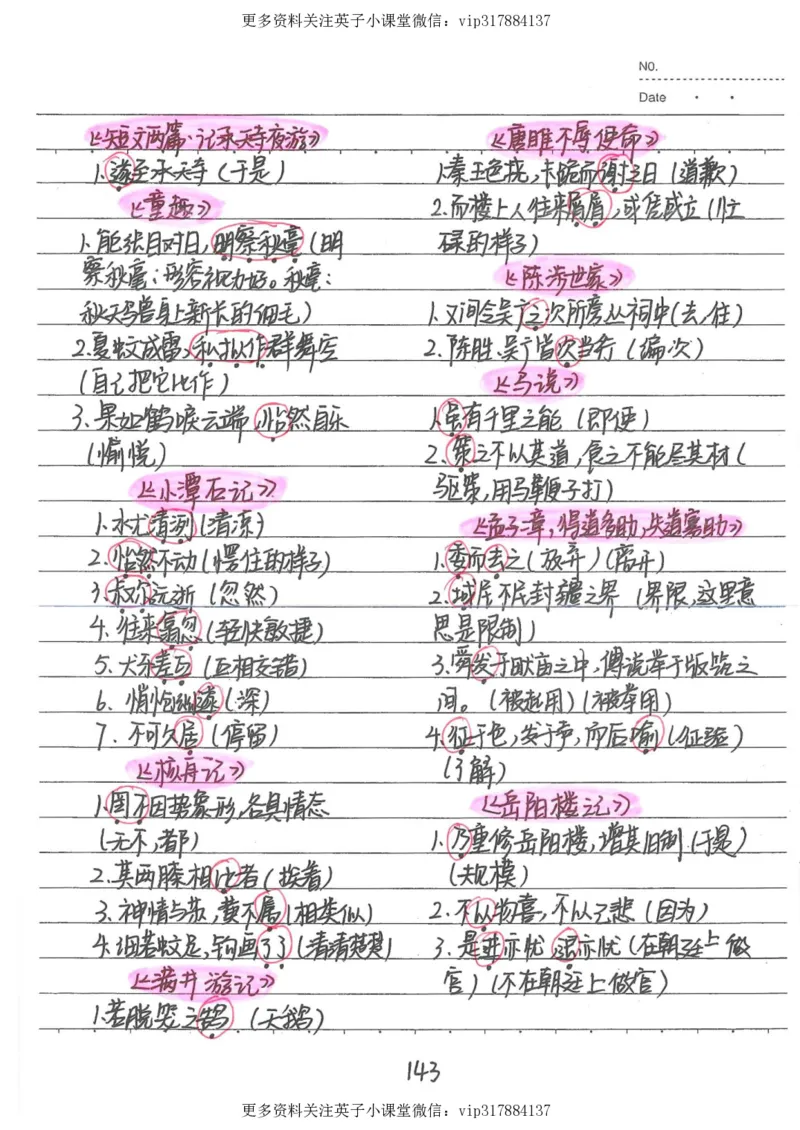 更多资料关注英子小课堂微信：vip317884137
NO.
Date
《短文两篇·记承天寺夜游》
1.遂至承天寺（于是）
《童趣》
1.能张目对日，明察秋毫（明
察秋毫：形容视力好。秋毫：
秋天鸟兽身上新长的细毛）
2.夏蚊成雷，私拟作群鹤舞空
（自己把它比作）
3.果如鹤唳云端，怡然自乐
（愉悦）
《小潭石记》
1.水尤清冽（清凉）
2.怡然不动（愣住的样子）
3.俶尔远逝（忽然）
4.往来翕忽（轻快敏捷）
5.犬牙差互（互相交错）
6.悄怆幽邃（深）
7.不可久居（停留）
《核舟记》
1.罔不因势象形，各具情态
（无不，都）
2.其两膝相比者（挨着）
3.神情与苏，黄不属（相类似）
4.细若蚊足，钩画了了（清清楚楚）
《满井游记》
1.若脱笼之鹄（天鹅）
《唐雎不辱使命》
1.秦王色挠，长跪而谢之曰（道歉）
2.而楼上人往来屑屑，或凭或立（忙
碌的样子）
《陈涉世家》
1.又间令吴广之次所旁丛祠中（去，往）
2.陈胜、吴广皆次当行（编次）
《马说》
1.虽有千里之能（即使）
2.策之不以其道，食之不能尽其材（
驱策，用马鞭子打）
《孟子二章，得道多助，失道寡助》
1.委而去之（放弃）（离开）
2.域民不民封疆之界（界限，这里意
思是限制）
3.舜发于畎亩之中，傅说举于版筑之
间。（被起用）（被举用）
4.征于色，发于声，而后喻（征验）
（了解）
《岳阳楼记》
1.乃重修岳阳楼，增其旧制（于是）
（规模）
2.不以物喜，不以己悲（因为）
3.是进亦忧 退亦忧（在朝廷上做
官）（不在朝廷上做官）
143
更多资料关注英子小课堂微信：vip317884137